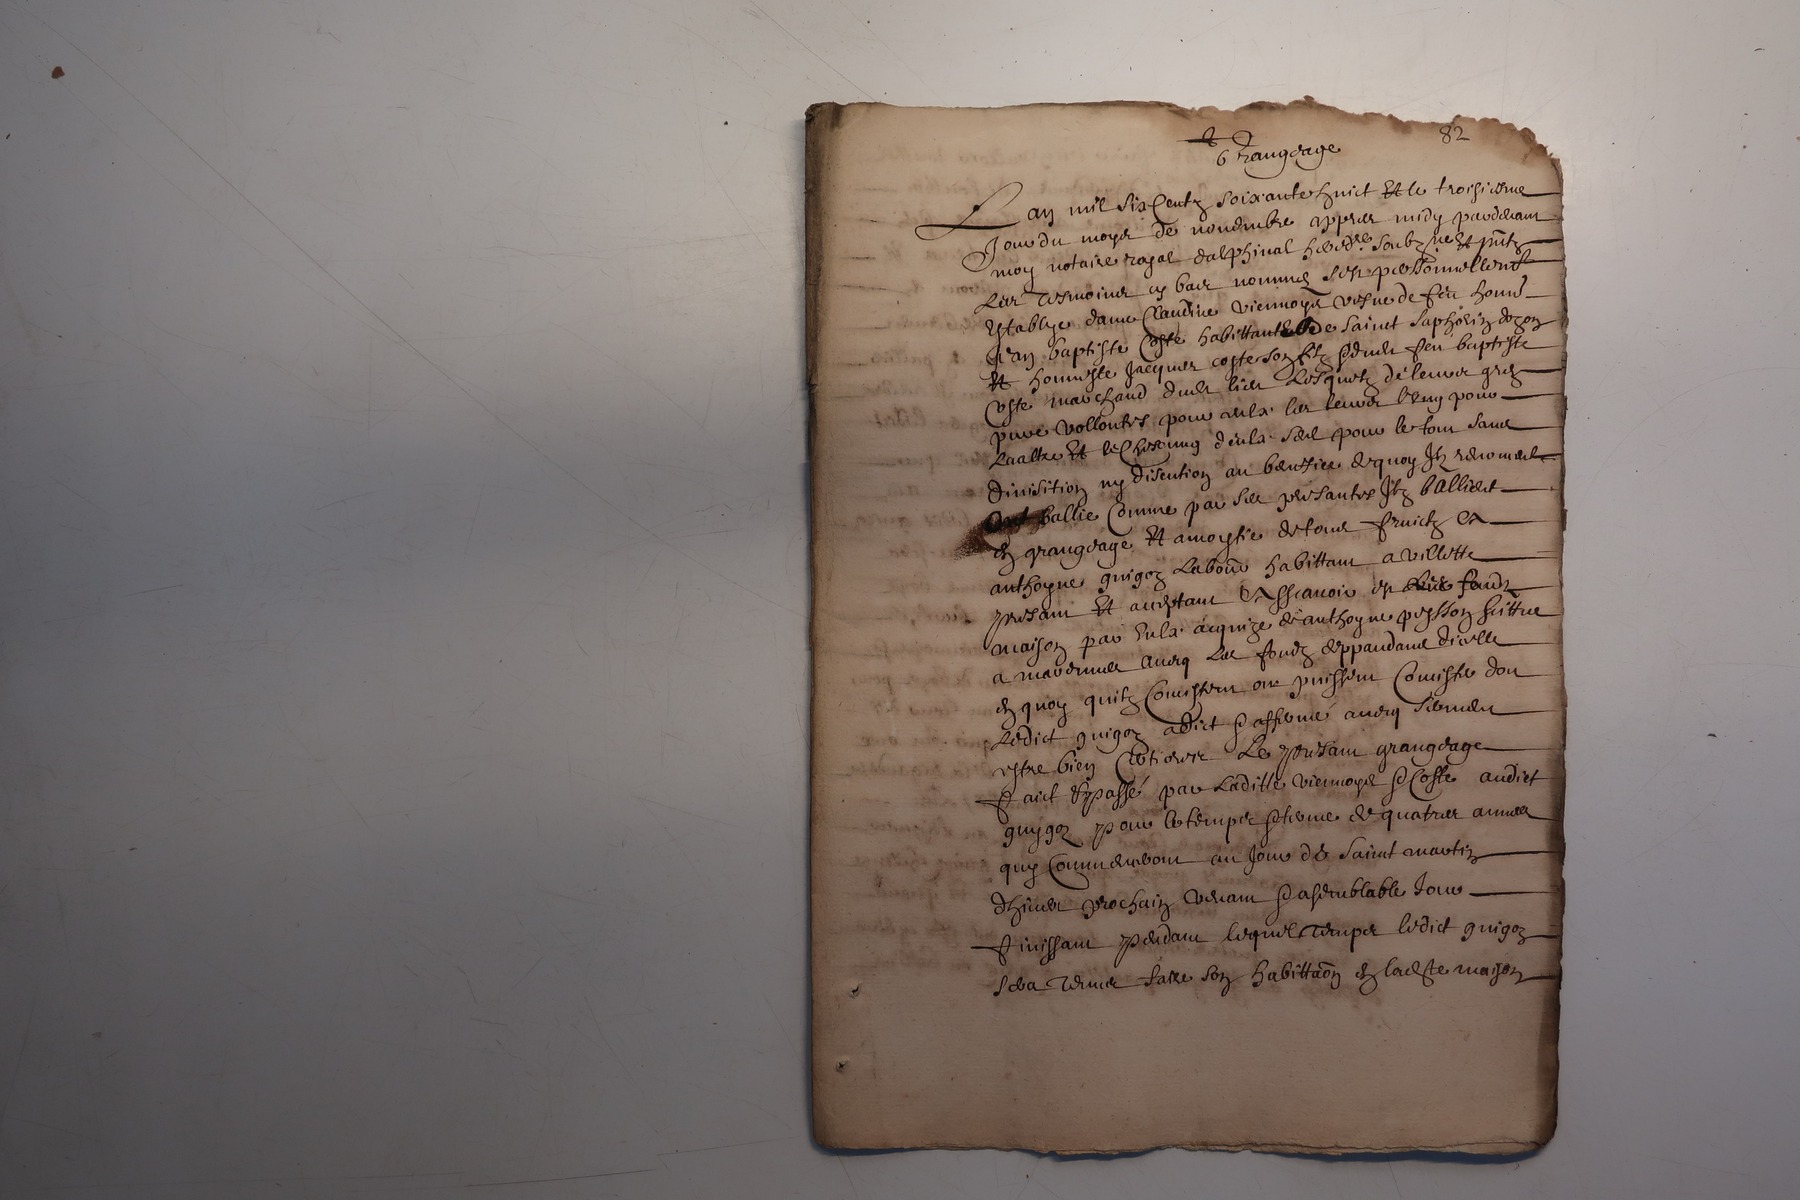 82
Grangeage
Lan mil six Centz soixante huict Et le troisiesme
Jour du moys de novembre appres midy pardevant
moy notaire royal dalphinal heredre soubzne Et pntz
Les tesmoins cy bas nommes sest personnellemt
establye dame Claudine viennoys vefve de feu honne
Jean baptiste Coste habittante de Saint Saphorin dozon
Et honneste Jacques coste son filz dudt feu baptiste
Coste marchand dudt lieu Lesquelz de leurs grez
pures vollontes pour eulx les leurs lung pour
Laultre Et le chescung deulx seul pour le tout sans
divisition ny discution au benefice de quoy Ilz renoncent
ont ballie Comme par ses presantes Ilz ballient
en grangeage Et amoytie de tous fruictz a
anthoyne guigoz Labour habittant a villette
presant Et acceptant assavoir es fondz
maison par eulx acquize de anthoyne peysson scittue
a marennes avecq Les fondz deppandans dicelle
en quoy quilz Consistent ou puissent Consister don
Ledict guigoz a dict affermé avecq serment
estre bien Certioré Le presant grangeage
faict passé par Laditte viennoys Coste audict
guygoz pour le temps terme de quatres annees
quy Commenceront au Jour de Saint martin
dhiver prochain venant asemblable Jour
finissant pendant lequel temps ledict guigoz
sera tenus faire son habittaon en ladte maison